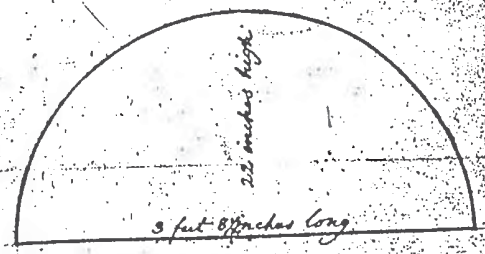 22 inches high
3 feet 8 inches long